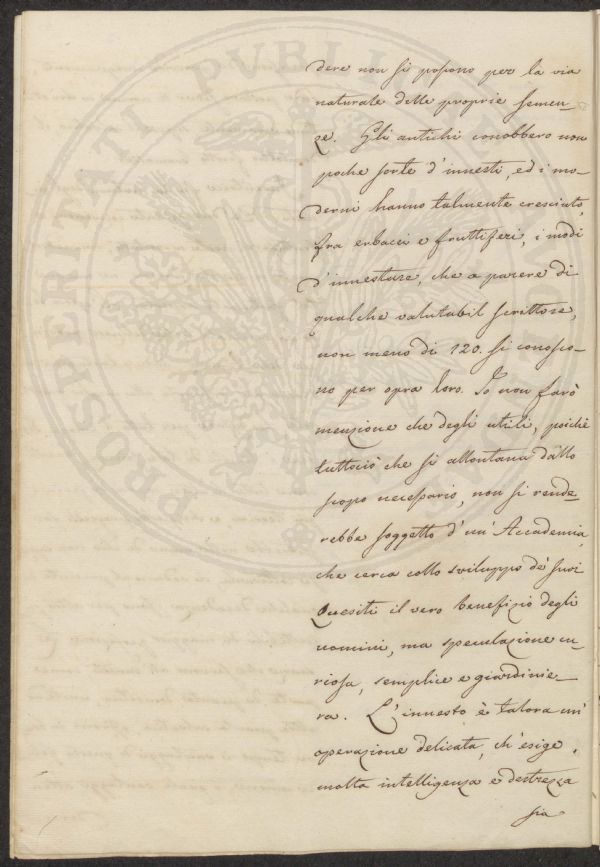 dere non si possono per la via
naturale delle proprie semen-
ze. Gli antichi conobbero non
poche sorte d'innesti, ed i mo-
derni hanno talmente cresciuto,
fra erbacei e fruttiferi, i modi
d'innestare, che a parere di
qualche valutabil scrittore,
non meno di 120. si conosco-
no per opra loro. Io non farò
menzione che degli utili, poichè
tuttociò che si allontana dallo
scopo necessario, non si rende-
rebbe soggetto d'un' Accademia,
che cerca collo sviluppo de' suoi
Quesiti il vero benefizio degli
uomini, ma speculazione cu-
riosa, semplice e giardinie-
ra. L'innesto è talora un'
operazione delicata, ch'esige
molta intelligenza e destrezza
sia
PROSPERITATI PUBLICAE